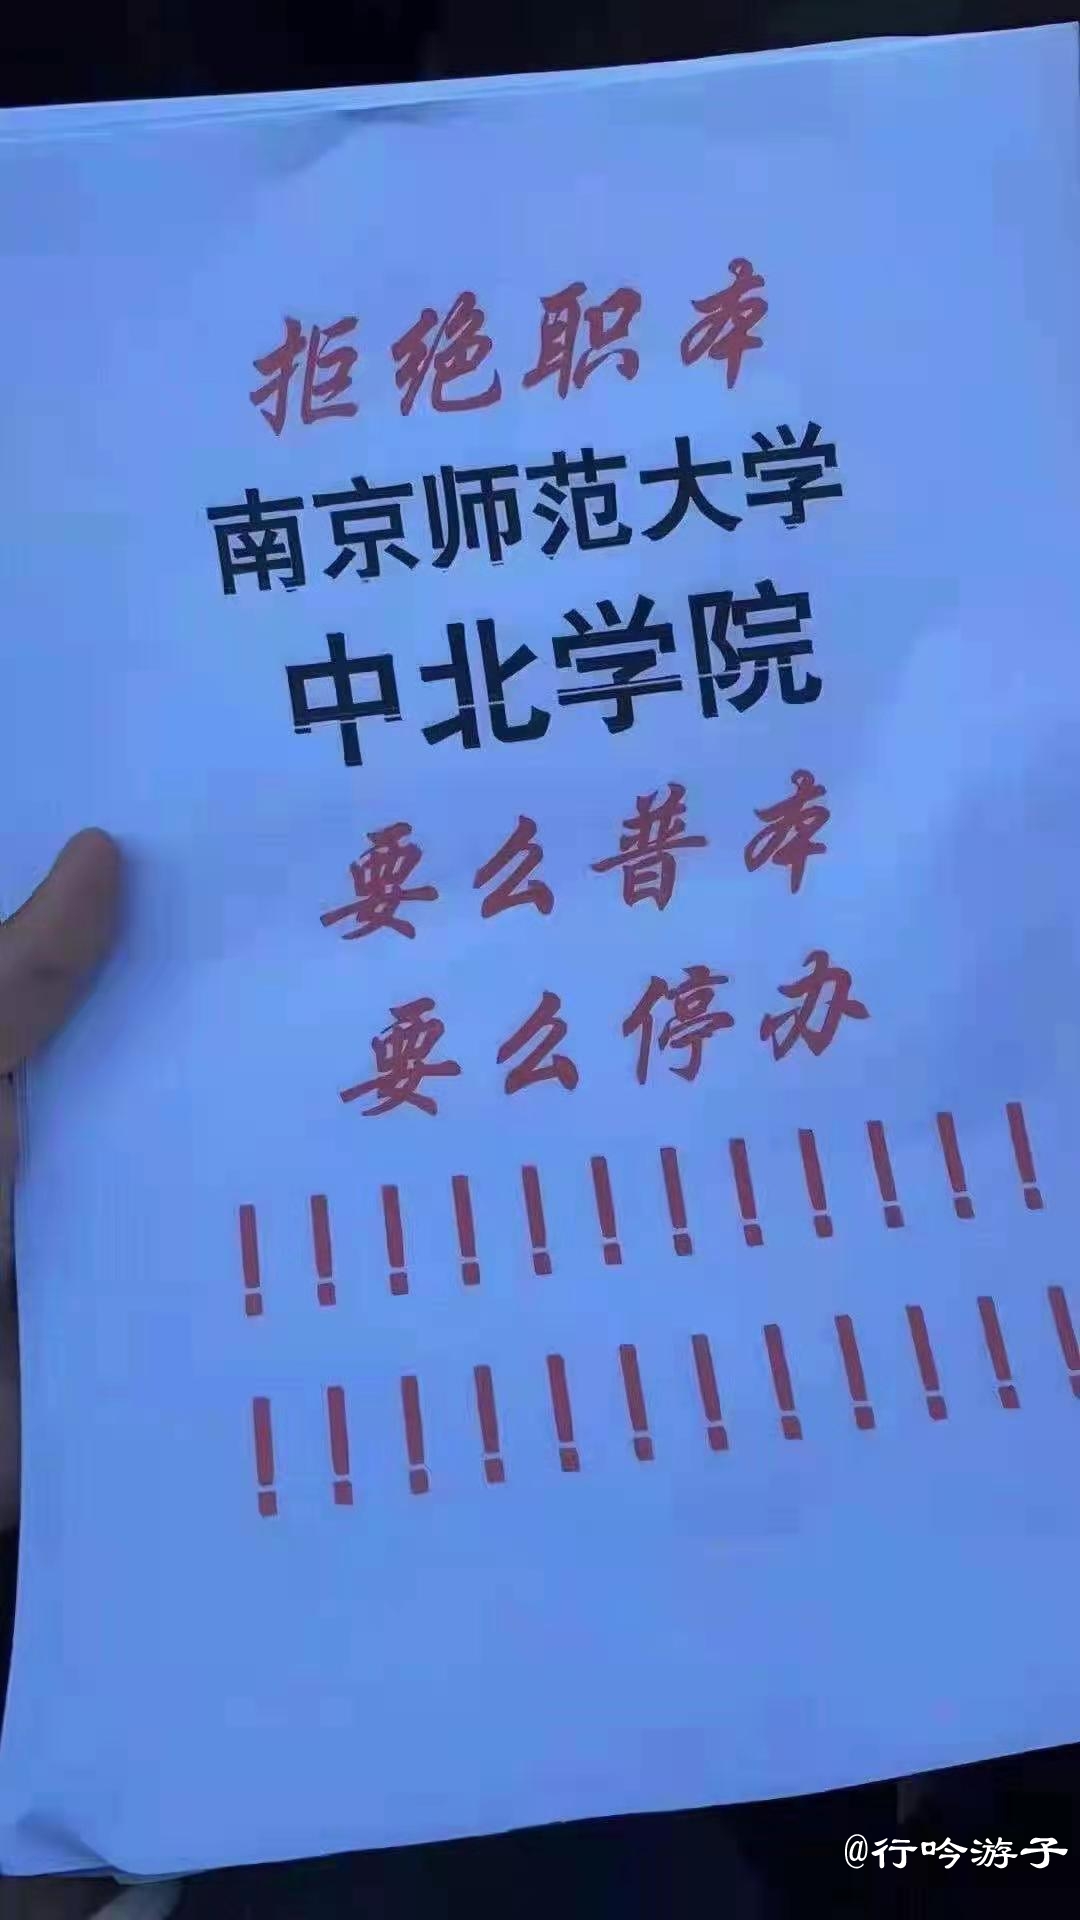 拒绝职本
南京师范大学
中北学院
要么普本
要么停办
！！！！！！！！！！！！
！！！！！！！！！！！！
@行吟游子